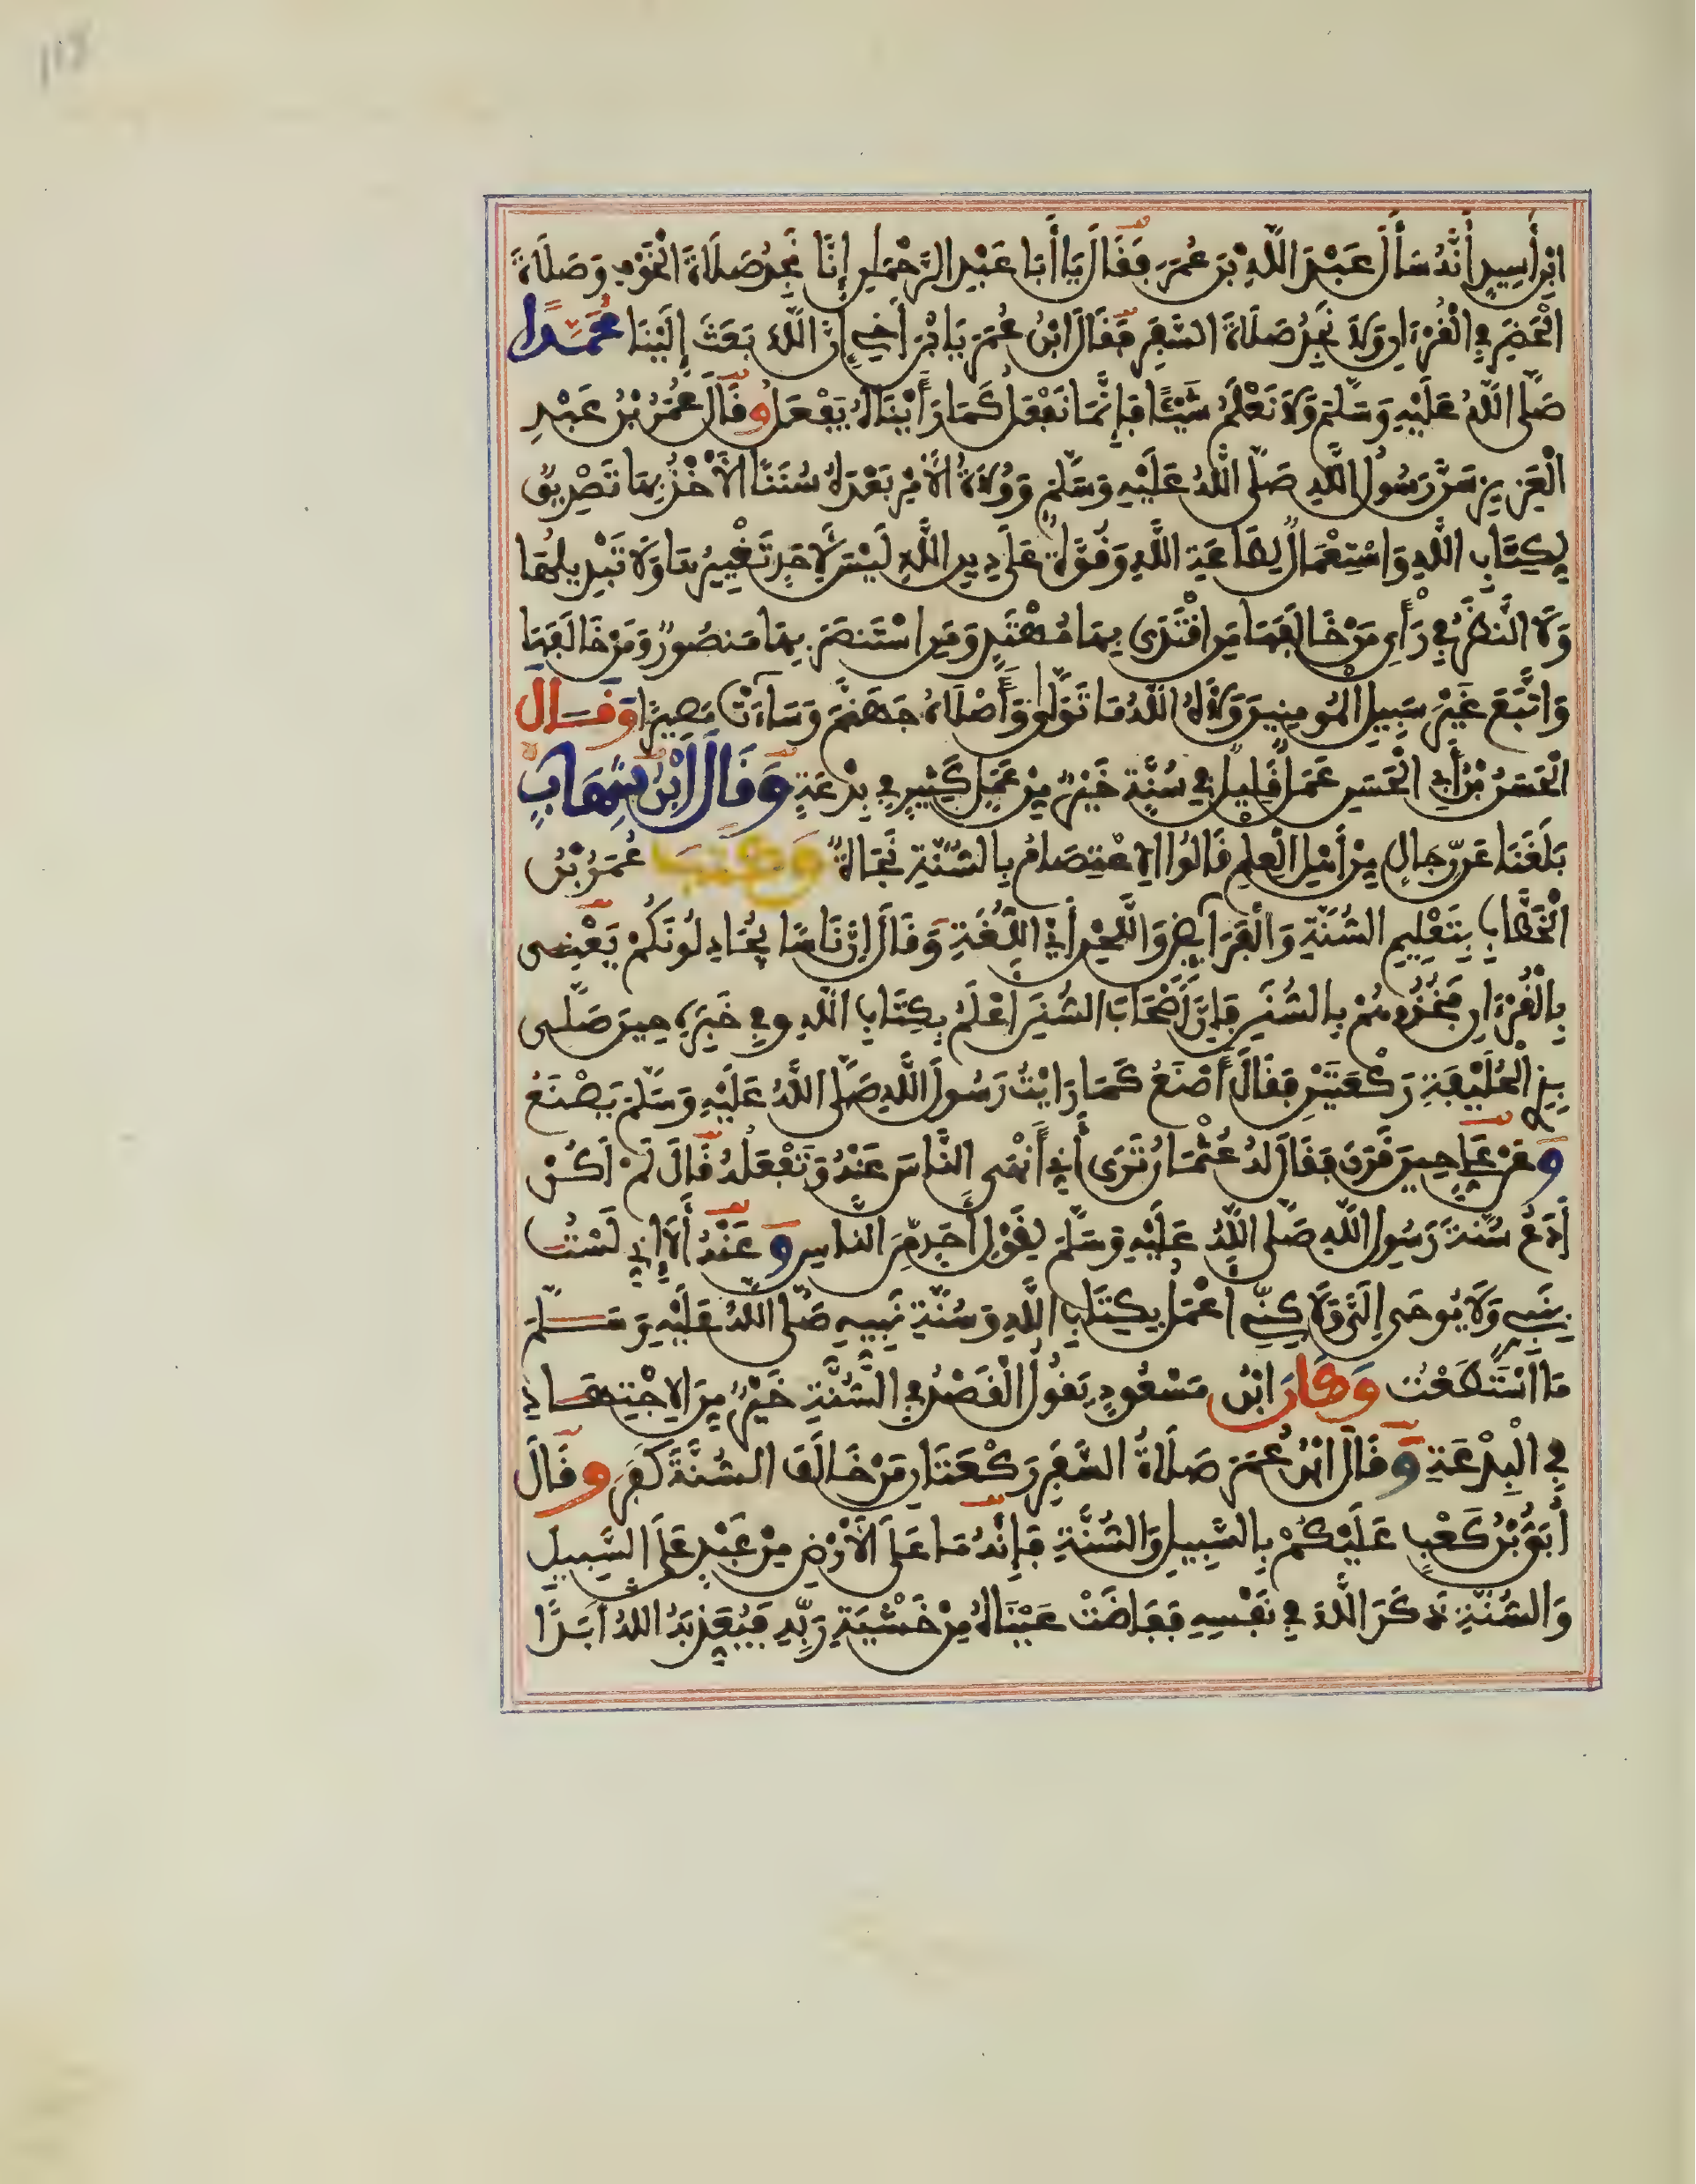 ابْنِ أَسِيدٍ أَنَّهُ سَأَلَ عَبْدَ اللَّهِ بْنَ عُمَرَ فَقَالَ يَا أَبَا عَبْدِ الرَّحْمَٰنِ إِنَّا نَجِدُ صَلَاةَ الْخَوْفِ وَصَلَاةَ
الْحَضَرِ فِي الْقُرْءَانِ وَلَا نَجِدُ صَلَاةَ السَّفَرِ فَقَالَ ابْنُ عُمَرَ يَا ابْنَ أَخِي إِنَّ اللَّهَ بَعَثَ إِلَيْنَا مُحَمَّدًا
صَلَّى اللَّهُ عَلَيْهِ وَسَلَّمَ وَلَا نَعْلَمُ شَيْئًا فَإِنَّمَا نَفْعَلُ كَمَا رَأَيْنَاهُ يَفْعَلُ وَقَالَ عُمَرُ بْنُ عَبْدِ
الْعَزِيزِ سَنَّ رَسُولُ اللَّهِ صَلَّى اللَّهُ عَلَيْهِ وَسَلَّمَ وَوُلَاةُ الْأَمْرِ بَعْدَهُ سُنَنًا الْأَخْذُ بِهَا تَصْدِيقٌ
لِكِتَابِ اللَّهِ وَاسْتِعْمَالٌ لِطَاعَةِ اللَّهِ وَقُوَّةٌ عَلَى دِينِ اللَّهِ لَيْسَ لِأَحَدٍ تَغْيِيرُهَا وَلَا تَبْدِيلُهَا
وَلَا النَّظَرُ فِي رَأْيِ مَنْ خَالَفَهَا مَنِ اقْتَدَى بِهَا مُهْتَدٍ وَمَنِ اسْتَنصَرَ بِهَا مَنصُورٌ وَمَنْ خَالَفَهَا
وَاتَّبَعَ غَيْرَ سَبِيلِ الْمُومِنِينَ وَلَّاهُ اللَّهُ مَا تَوَلَّى وَأَصْلَاهُ جَهَنَّمَ وَسَاءَتْ مَصِيرًا وَقَالَ
الْحَسَنُ بْنُ أَبِي الْحَسَنِ عَمَلٌ قَلِيلٌ فِي سُنَّةٍ خَيْرٌ مِنْ عَمَلٍ كَثِيرٍ فِي بِدْعَةٍ وَقَالَ ابْنُ شِهَابٍ
بَلَغَنَا عَن رِّجَالٍ مِنْ أَهْلِ الْعِلْمِ قَالُوا الِاعْتِصَامُ بِالسُّنَّةِ نَجَاةٌ وَكَتَبَ عُمَرُ بْنُ
الْخَطَّابِ بِتَعْلِيمِ السُّنَّةِ وَالْفَرَائِضِ وَاللَّحْنِ أَيِ اللُّغَةِ وَقَالَ إِنَّ نَاسًا يُجَادِلُونَكُمْ يَعْنِي
بِالْقُرْءَانِ فَخُذُوهُمْ بِالسُّنَنِ فَإِنَّ أَصْحَابَ السُّنَنِ أَعْلَمُ بِكِتَابِ اللَّهِ وَفِي خَبَرِهِ حِينَ صَلَّى
بِذِي الْحُلَيْفَةِ رَكْعَتَيْنِ فَقَالَ أَصْنَعُ كَمَا رَأَيْتُ رَسُولَ اللَّهِ صَلَّى اللَّهُ عَلَيْهِ وَسَلَّمَ يَصْنَعُ
وَعَنْ عَلِيٍّ حِينَ قَرَنَ فَقَالَ لَهُ عُثْمَانُ تَرَى أَنِّي أَنْهَى النَّاسَ عَنْهُ وَتَفْعَلُهُ قَالَ لَمْ أَكُنْ
أَدَعُ سُنَّةَ رَسُولِ اللَّهِ صَلَّى اللَّهُ عَلَيْهِ وَسَلَّمَ لِقَوْلِ أَحَدٍ مِّنَ النَّاسِ وَعَنْهُ أَلَا إِنِّي لَسْتُ
بِنَبِيٍّ وَلَا يُوحَى إِلَيَّ وَلَاكِنِّي أَعْمَلُ بِكِتَابِ اللَّهِ وَسُنَّةِ نَبِيِّهِ صَلَّى اللَّهُ عَلَيْهِ وَسَلَّمَ
مَا اسْتَطَعْتُ وَكَانَ ابْنُ مَسْعُودٍ يَقُولُ الْقَصْدُ فِي السُّنَّةِ خَيْرٌ مِنَ الِاجْتِهَادِ
فِي الْبِدْعَةِ وَقَالَ ابْنُ عُمَرَ صَلَاةُ السَّفَرِ رَكْعَتَانِ مَنْ خَالَفَ السُّنَّةَ كَفَرَ وَقَالَ
أُبَيُّ بْنُ كَعْبٍ عَلَيْكُمْ بِالسَّبِيلِ وَالسُّنَّةِ فَإِنَّهُ مَا عَلَى الْأَرْضِ مِنْ عَبْدٍ عَلَى السَّبِيلِ
وَالسُّنَّةِ ذَكَرَ اللَّهَ فِي نَفْسِهِ فَفَاضَتْ عَيْنَاهُ مِنْ خَشْيَةِ رَبِّهِ فَيُعَذِّبَهُ اللَّهُ أَبَدًا